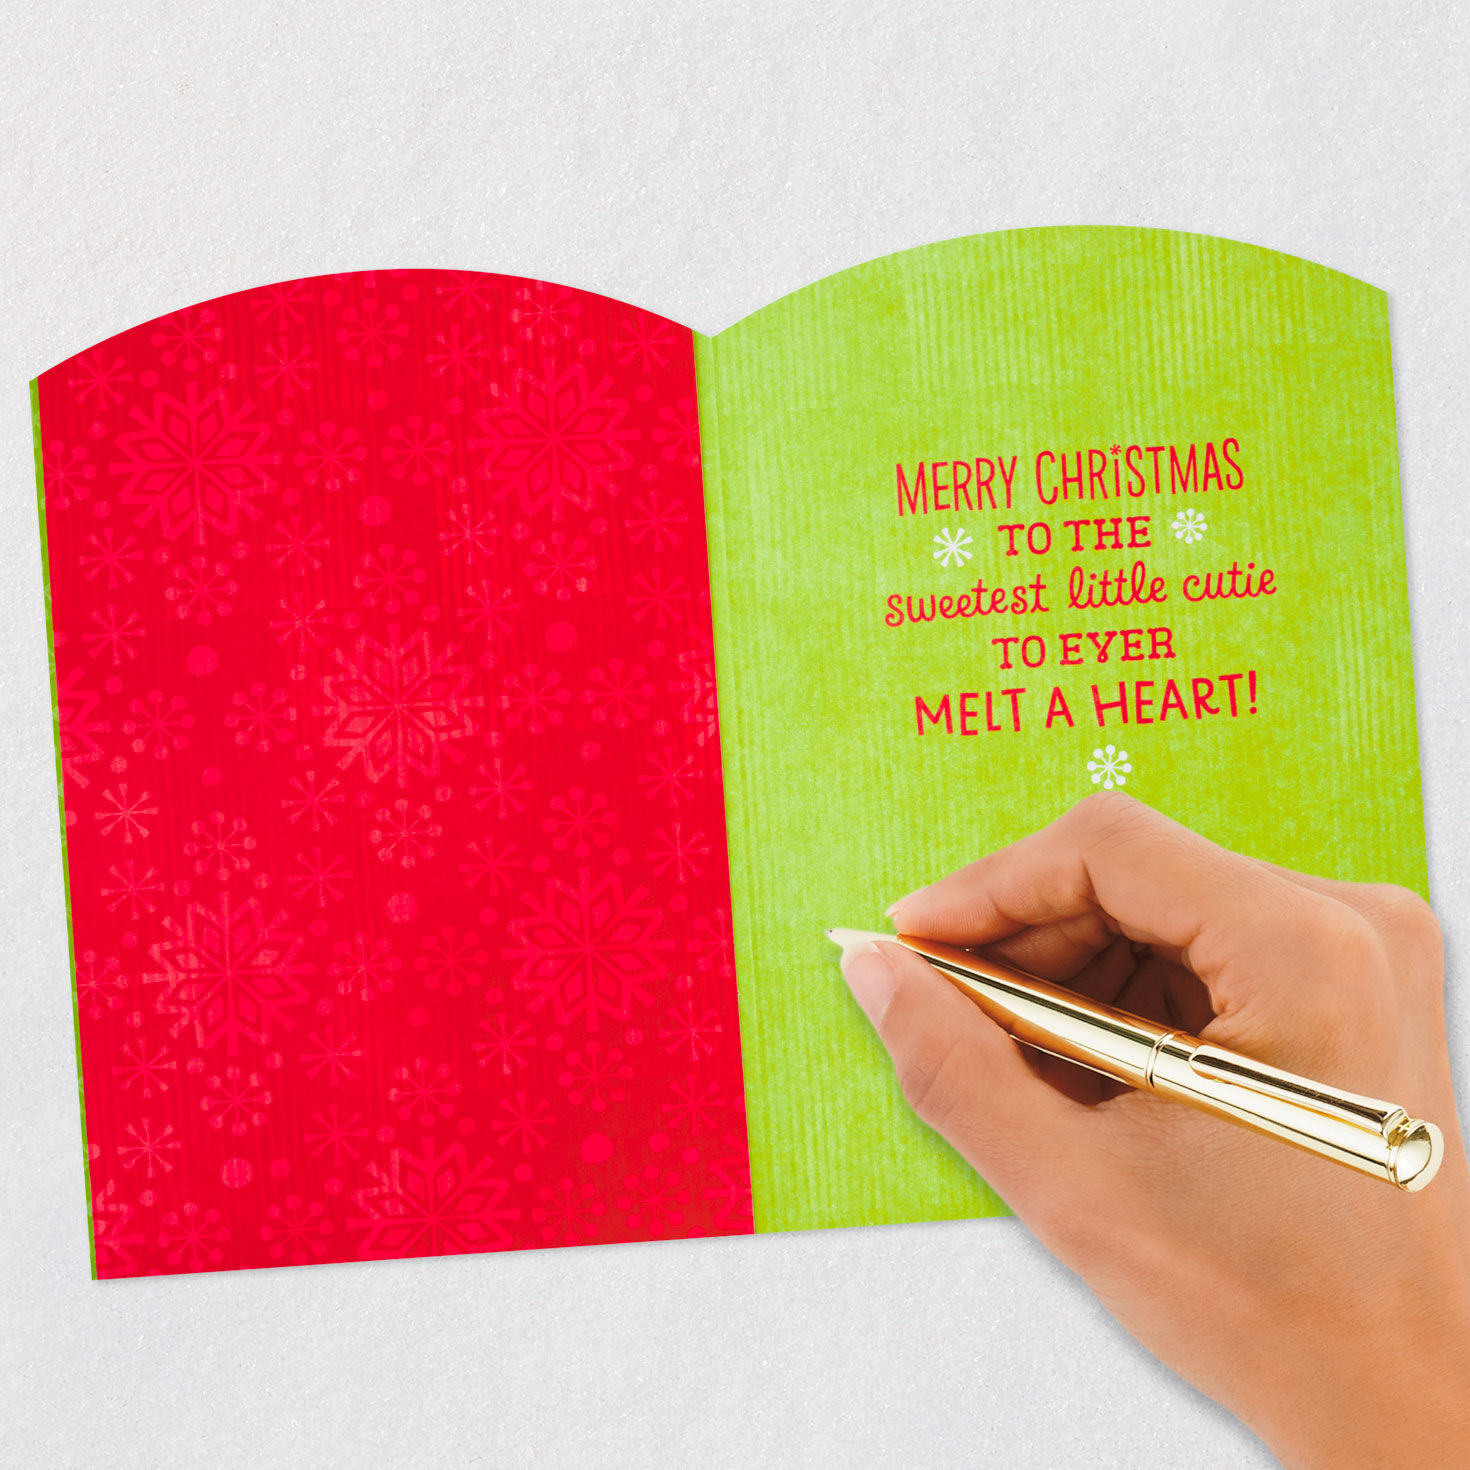 MERRY CHRiSTMAS
TO THE
sweetest little cutie
TO EVER
MELT A HEART!